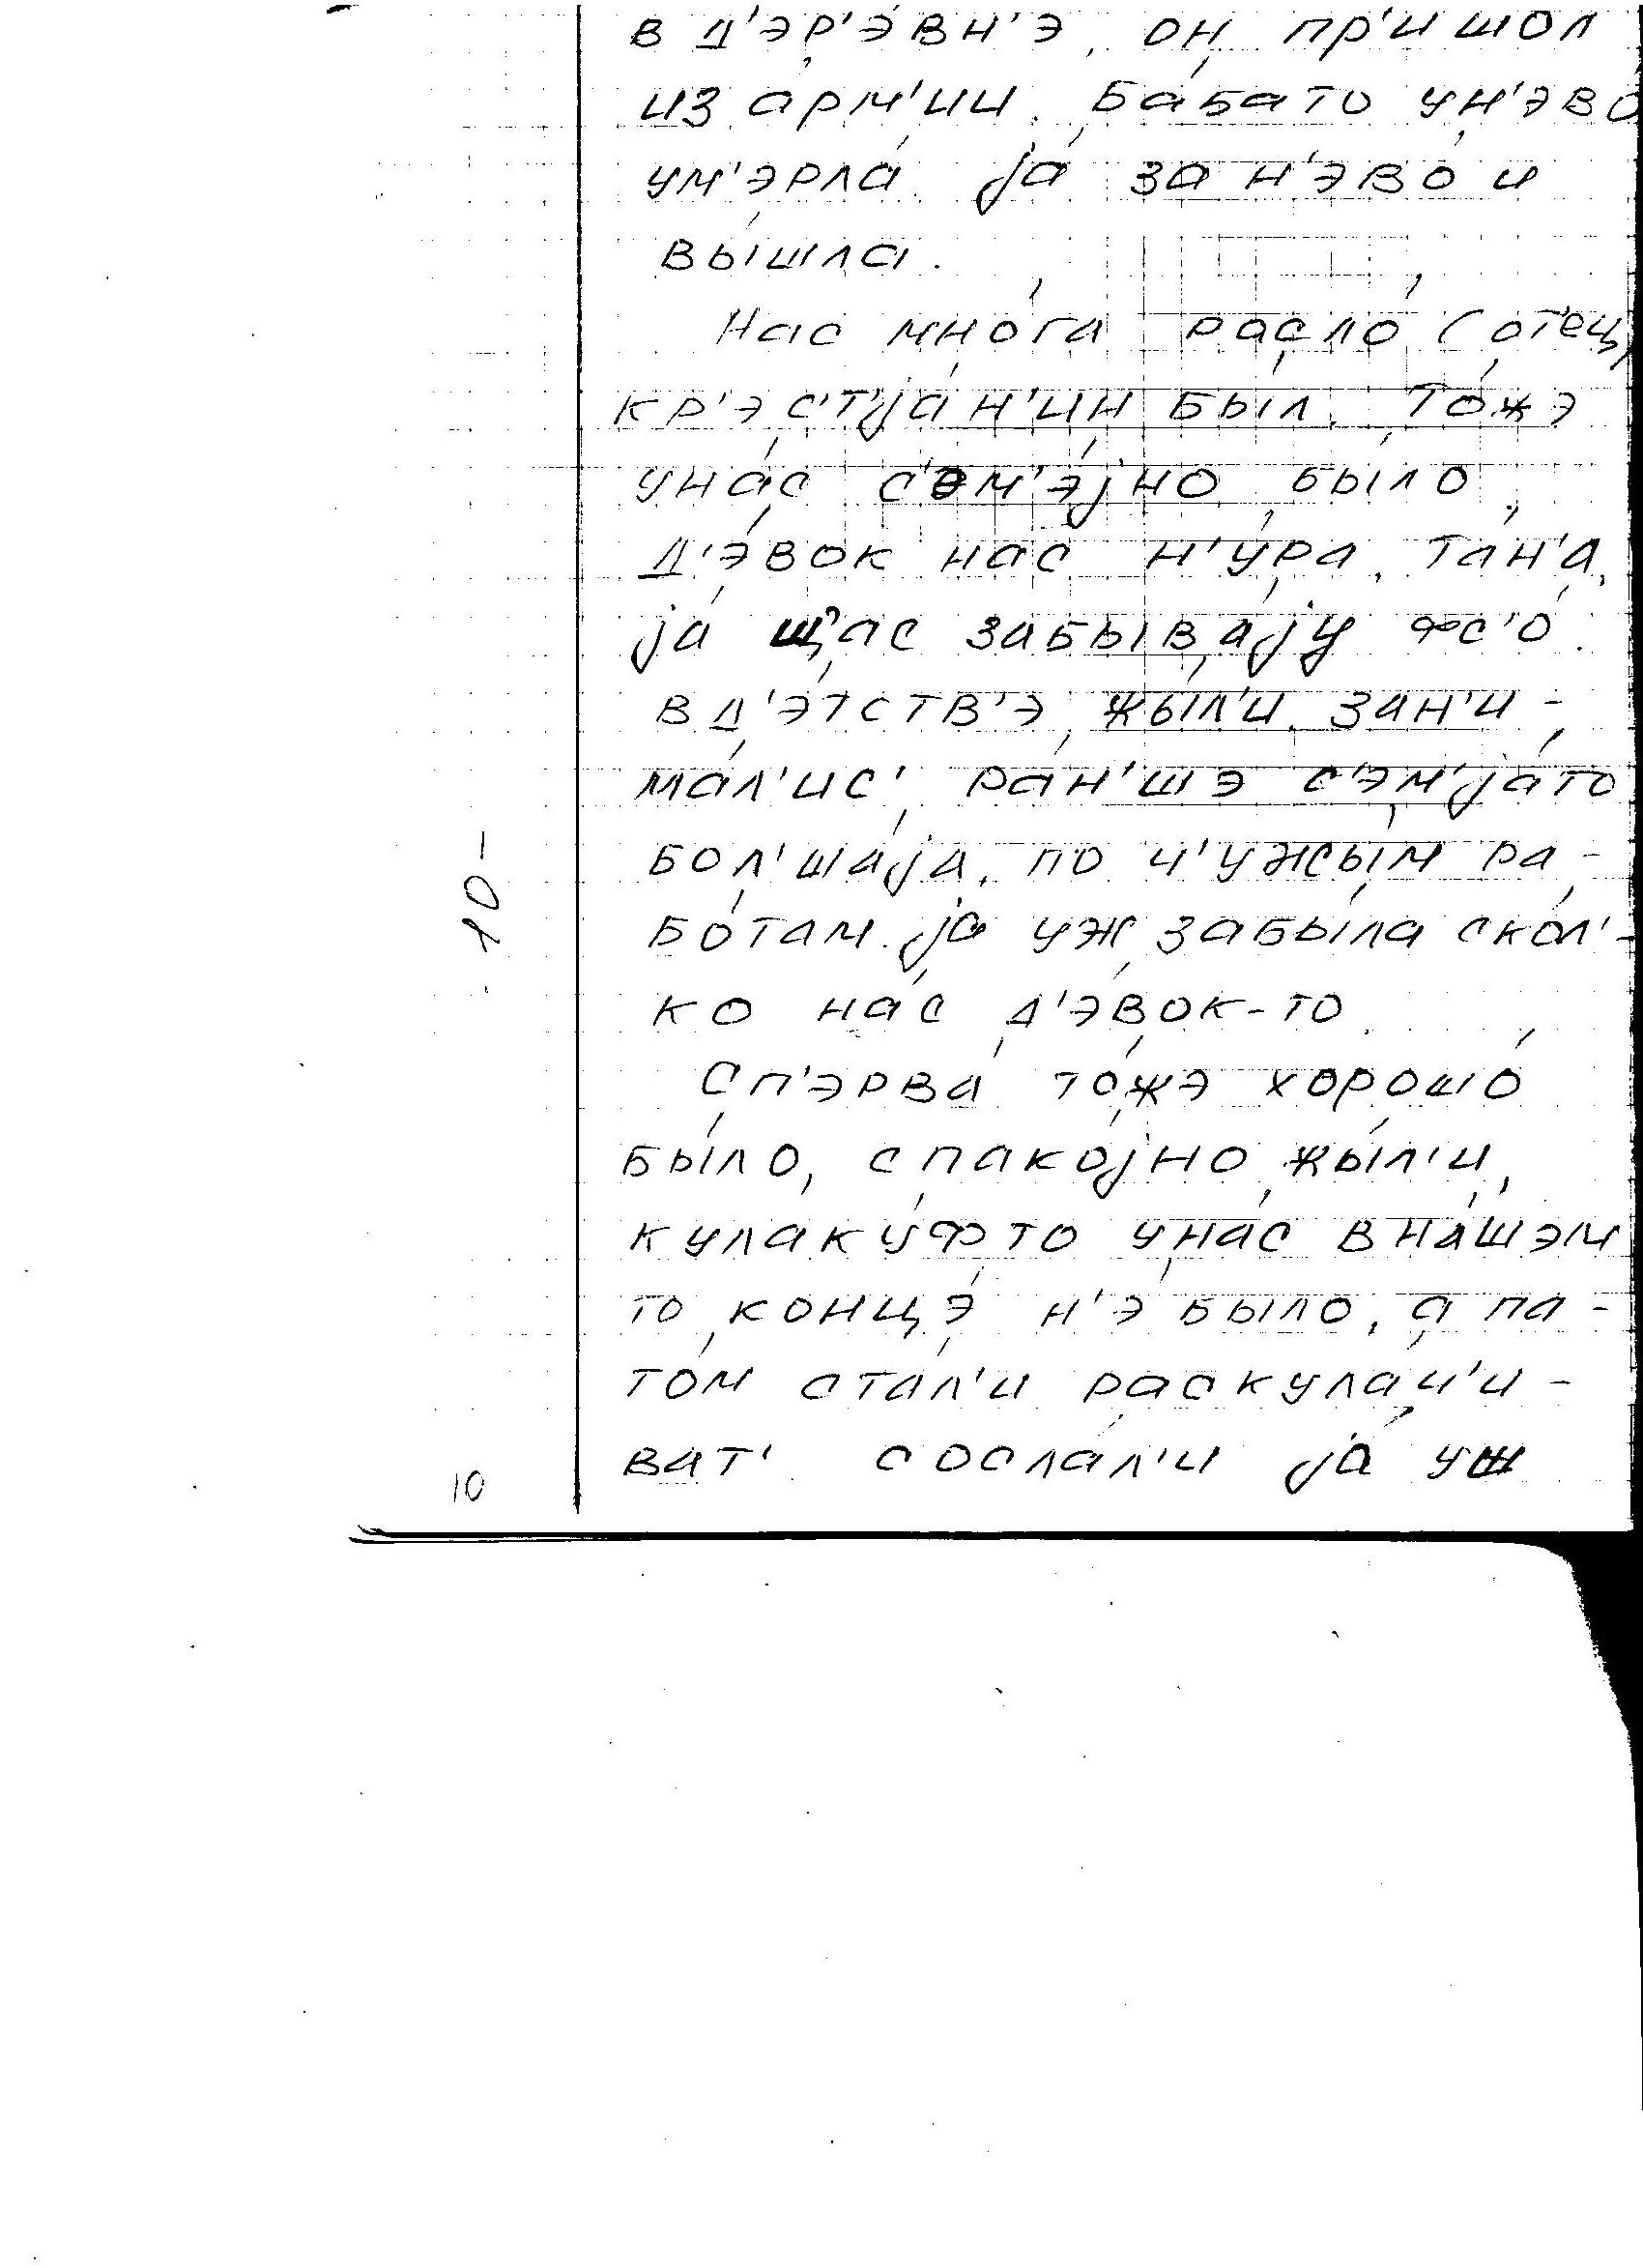 в д'эр'э́вн'э, он пр'ишол
из а́рм'ии. ба́бато ун'эво́
ум'эрла́. ја́ за н'эво́ и
вы́шла.
Нас мно́га расло́ (от'ец
кр'эст'ја́н'ин был. То́жэ
уна́с с'эм'э́јно было,
д'э́вок нас н'у́ра, та́н'а,
ја́ щ'ас забыва́ју фс'о́.
в д'э́тств'э жы́л'и. зан'и-
ма́л'ис', ра́н'шэ с'эм'ја́то
бол'ша́ја, по ч'ужы́м ра-
бо́там. ја́ уж забы́ла ско́л'-
ко на́с д'э́вок-то.
Сп'эрва́ то́жэ хорошо́
бы́ло, спако́јно жы́л'и,
кулаку́фто уна́с в на́шэм
то концэ́ н'э́ было, а па-
то́м ста́л'и раскула́ч'и-
ват'. сосла́л'и ја́ уш
-10-
10